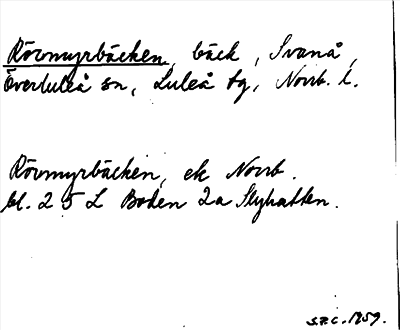 Rövmyrbäcken, bäck, Svanå,
Överluleå sn, Luleå tg, Norrb. l.
Rövmyrbäcken, ek Norrb.
bl. 25 L Boden 2a Slyhatten.
S.F.C. 1959.